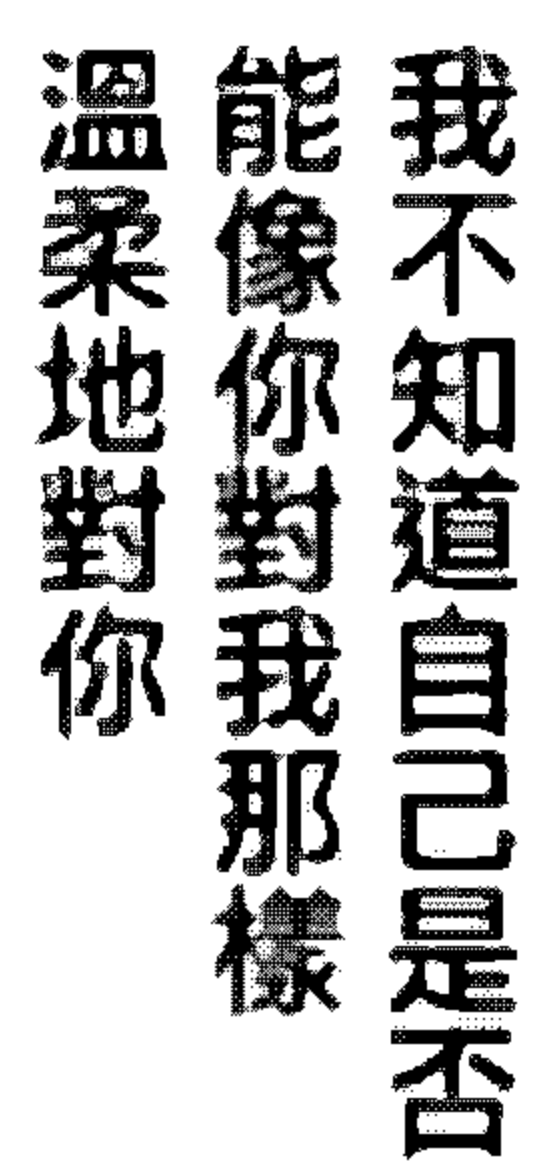 我不知道自己是否
能像你對我那樣
溫柔地對你